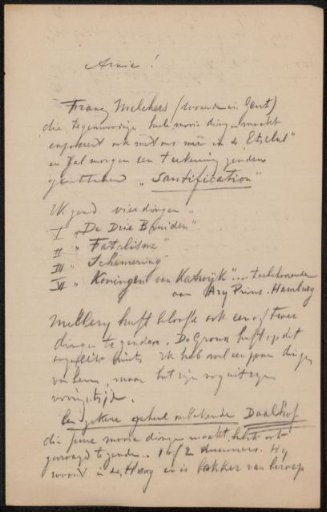 Amice!
Franz Melchers (wonende in Gent)
die tegenwoordig heele mooie dingen maakt
exposeert ook met ons mee in de Etsclub
en zal morgen een teekening zenden
getiteld „Santification"
Ik zend vier dingen
I „De Drie Bruiden"
II „Fatalisme"
III „Schemering"
IV „Koningin van Katwijk"... toebehoorende
aan Ary Prins. Hamburg
Mellery heeft beloofd ook een of twee
dingen te zenden. De Groux heeft op dit
oogenblik niets. Ik heb wel een paar dingen
van hem, maar het zijn
Een zekere geheel onbekende Daalhof
die fijne mooie dingen maakt, heb ik ook
gevraagd te zenden. 1 of 2 nummers. Hij
woont in den Haag en is bakker van beroep